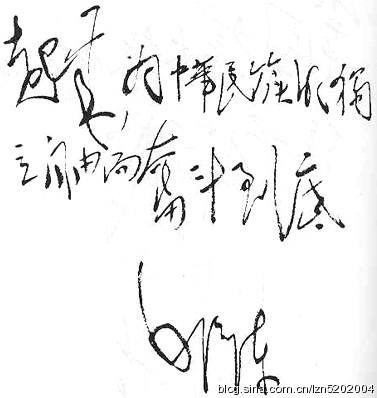 起来,为中華民族的独
立自由而奮斗到底
毛泽东
blog.sina.com.cn/lzn5202004